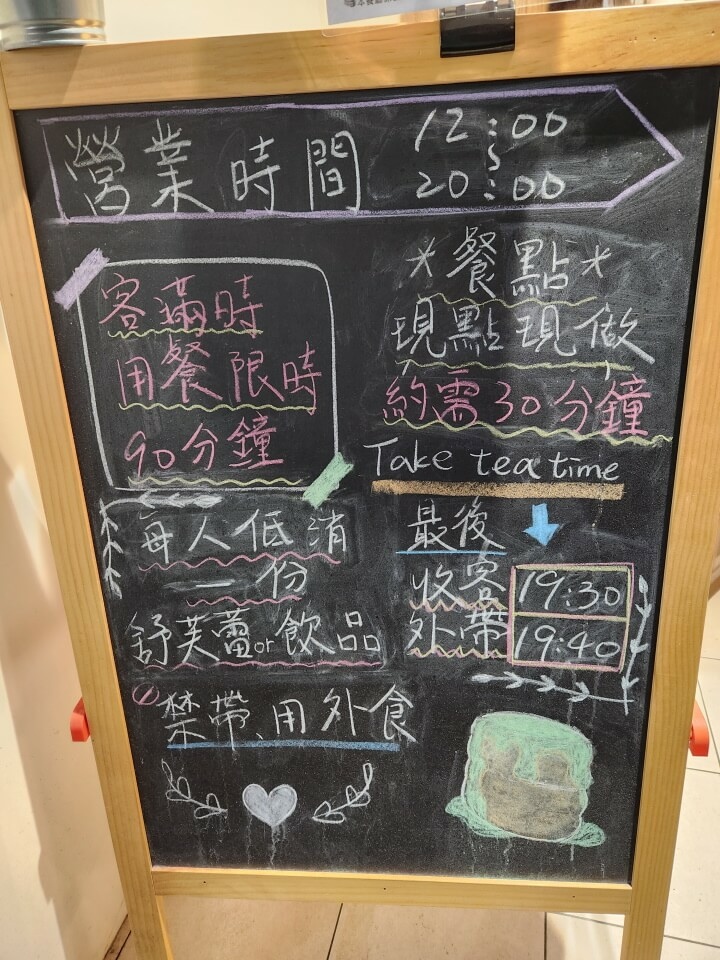 營業時間
12:00
~
20:00
客滿時
用餐限時
90分鐘
*餐點*
現點現做
約需30分鐘
Take tea time
每人低消
一份
舒芙蕾or飲品
最後
收客 19:30
外帶 19:40
禁帶、用外食